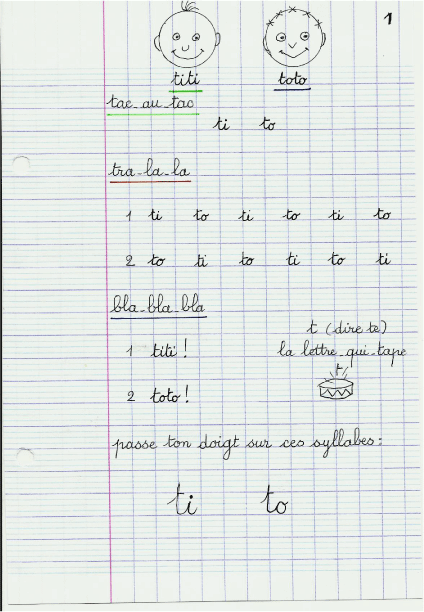 1
titi toto
tac_au_tac
ti to
tra_la_la
1 ti to ti to ti to
2 to ti to ti to ti
bla_bla_bla
t (dire te)
1 titi !
la lettre_qui_tape
t
2 toto !
passe ton doigt sur ces syllabes :
ti to